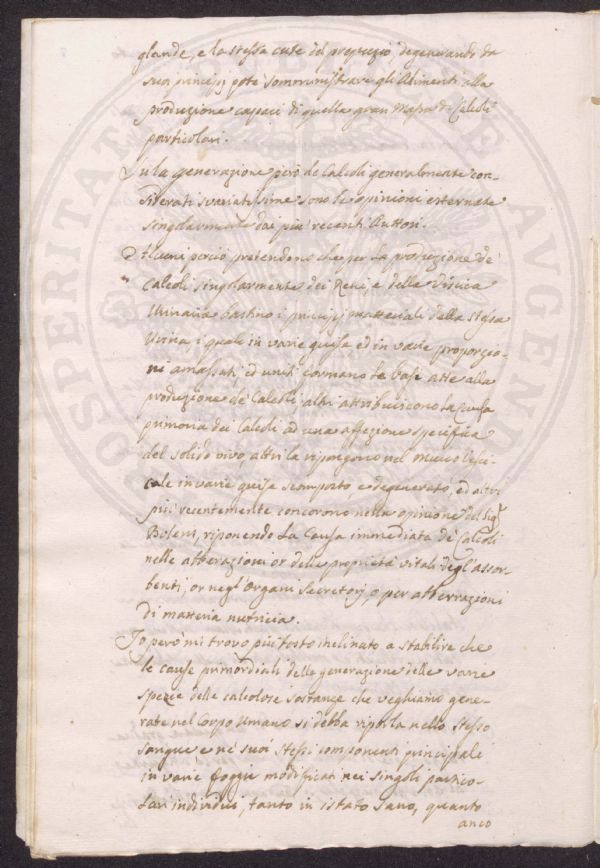 glande, e la stessa cute del prepuzio, degenerando da
suoi principj pote somministrare gli alimenti alla
produzione capaci di quella gran Massa di Calcoli
particolari.
Su la generazione però de Calcoli generalmente con-
siderati svariatissime sono le opinioni esternate
singolarmente dai più recenti Auttori.
Alcuni perciò pretendono che per la produzione de
Calcoli singolarmente dei Reni, e della Viscica
Urinaria bastino i principj matteriali della stessa
Urina, i quali in varie guise, ed in varie proporzio-
ni amassati, ed uniti formano le basi atte alla
produzione de Calcoli, altri attribuiscono la causa
primaria dei Calcoli ad una affezione specifica
del solido vivo, altri la ripongono nel muco Vesci-
cale in varie guise scomposto, e degenerato, ed altri
più recentemente concorrono nella opinione del Sigr
riponendo La Causa immediata de Calcoli
nelle abberazioni or delle proprietà vitali degl'assor-
benti, or negl'Organi Secretorj, o per abberrazioni
di matteria nutricia.
Io però mi trovo più tosto inclinato a stabilire che
le cause primordiali delle generazione delle varie
spezie delle calcolose sostanze che veghiamo gene-
rate nel Corpo Umano si debba riporla nello stesso
sangue e ne suoi stessi componenti principali
in varie foggie modificati nei singoli partico-
lari individui, tanto in istato sano, quanto
anco
PROSPERITATI PUBLICAE AUGENDAE